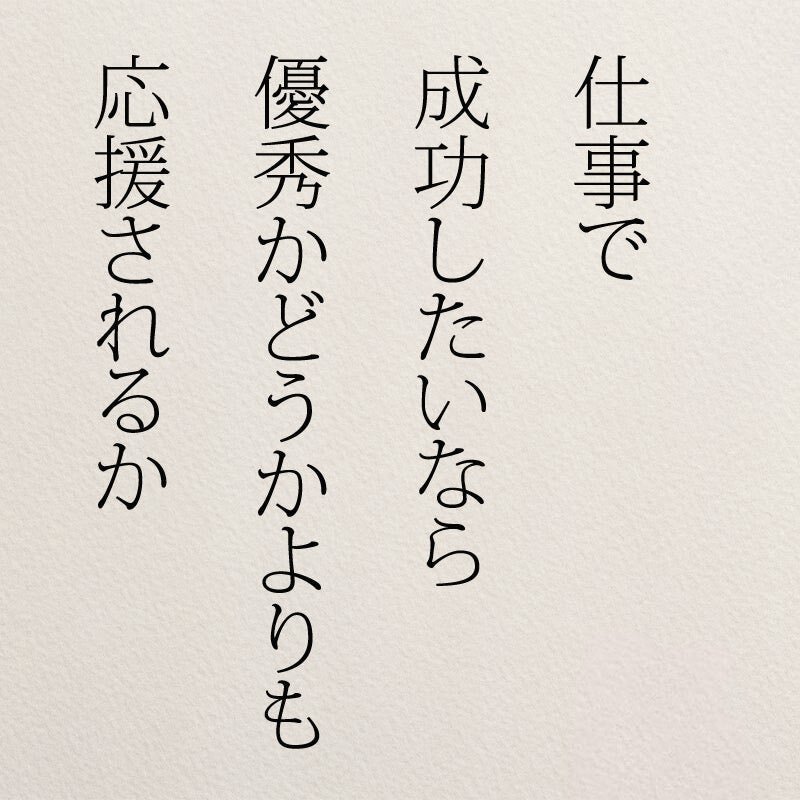 仕事で
成功したいなら
優秀かどうかよりも
応援されるか